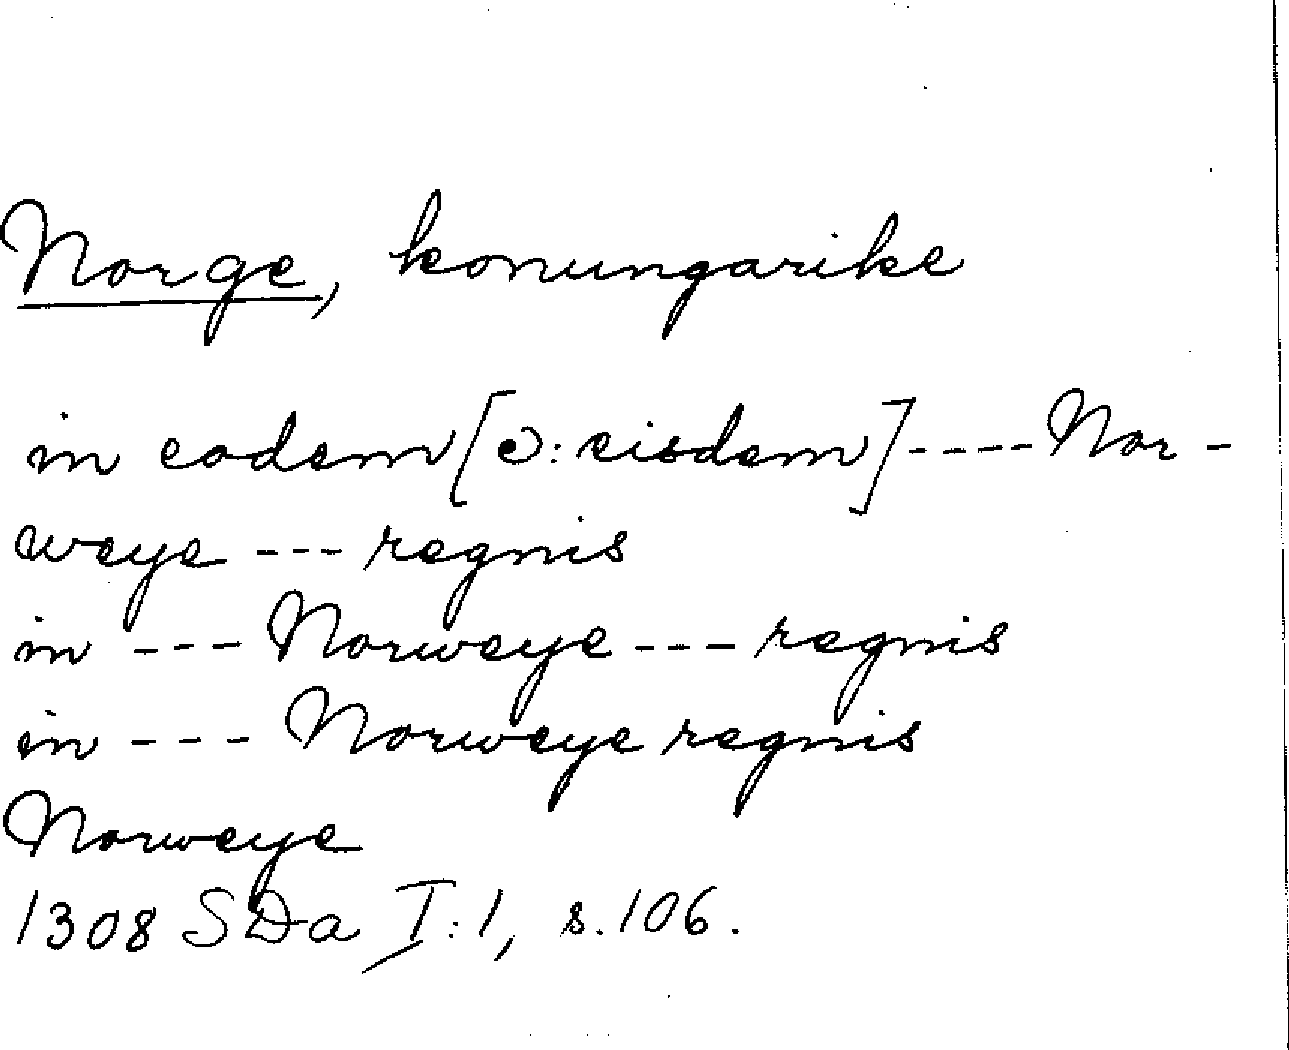 Norge, konungarike
in eodem [ɔ: eisdem] ---- Nor-
weye --- regnis
in --- Norweye --- regnis
in --- Norweye regnis
Norweye
1308 SDa I:1, s. 106.